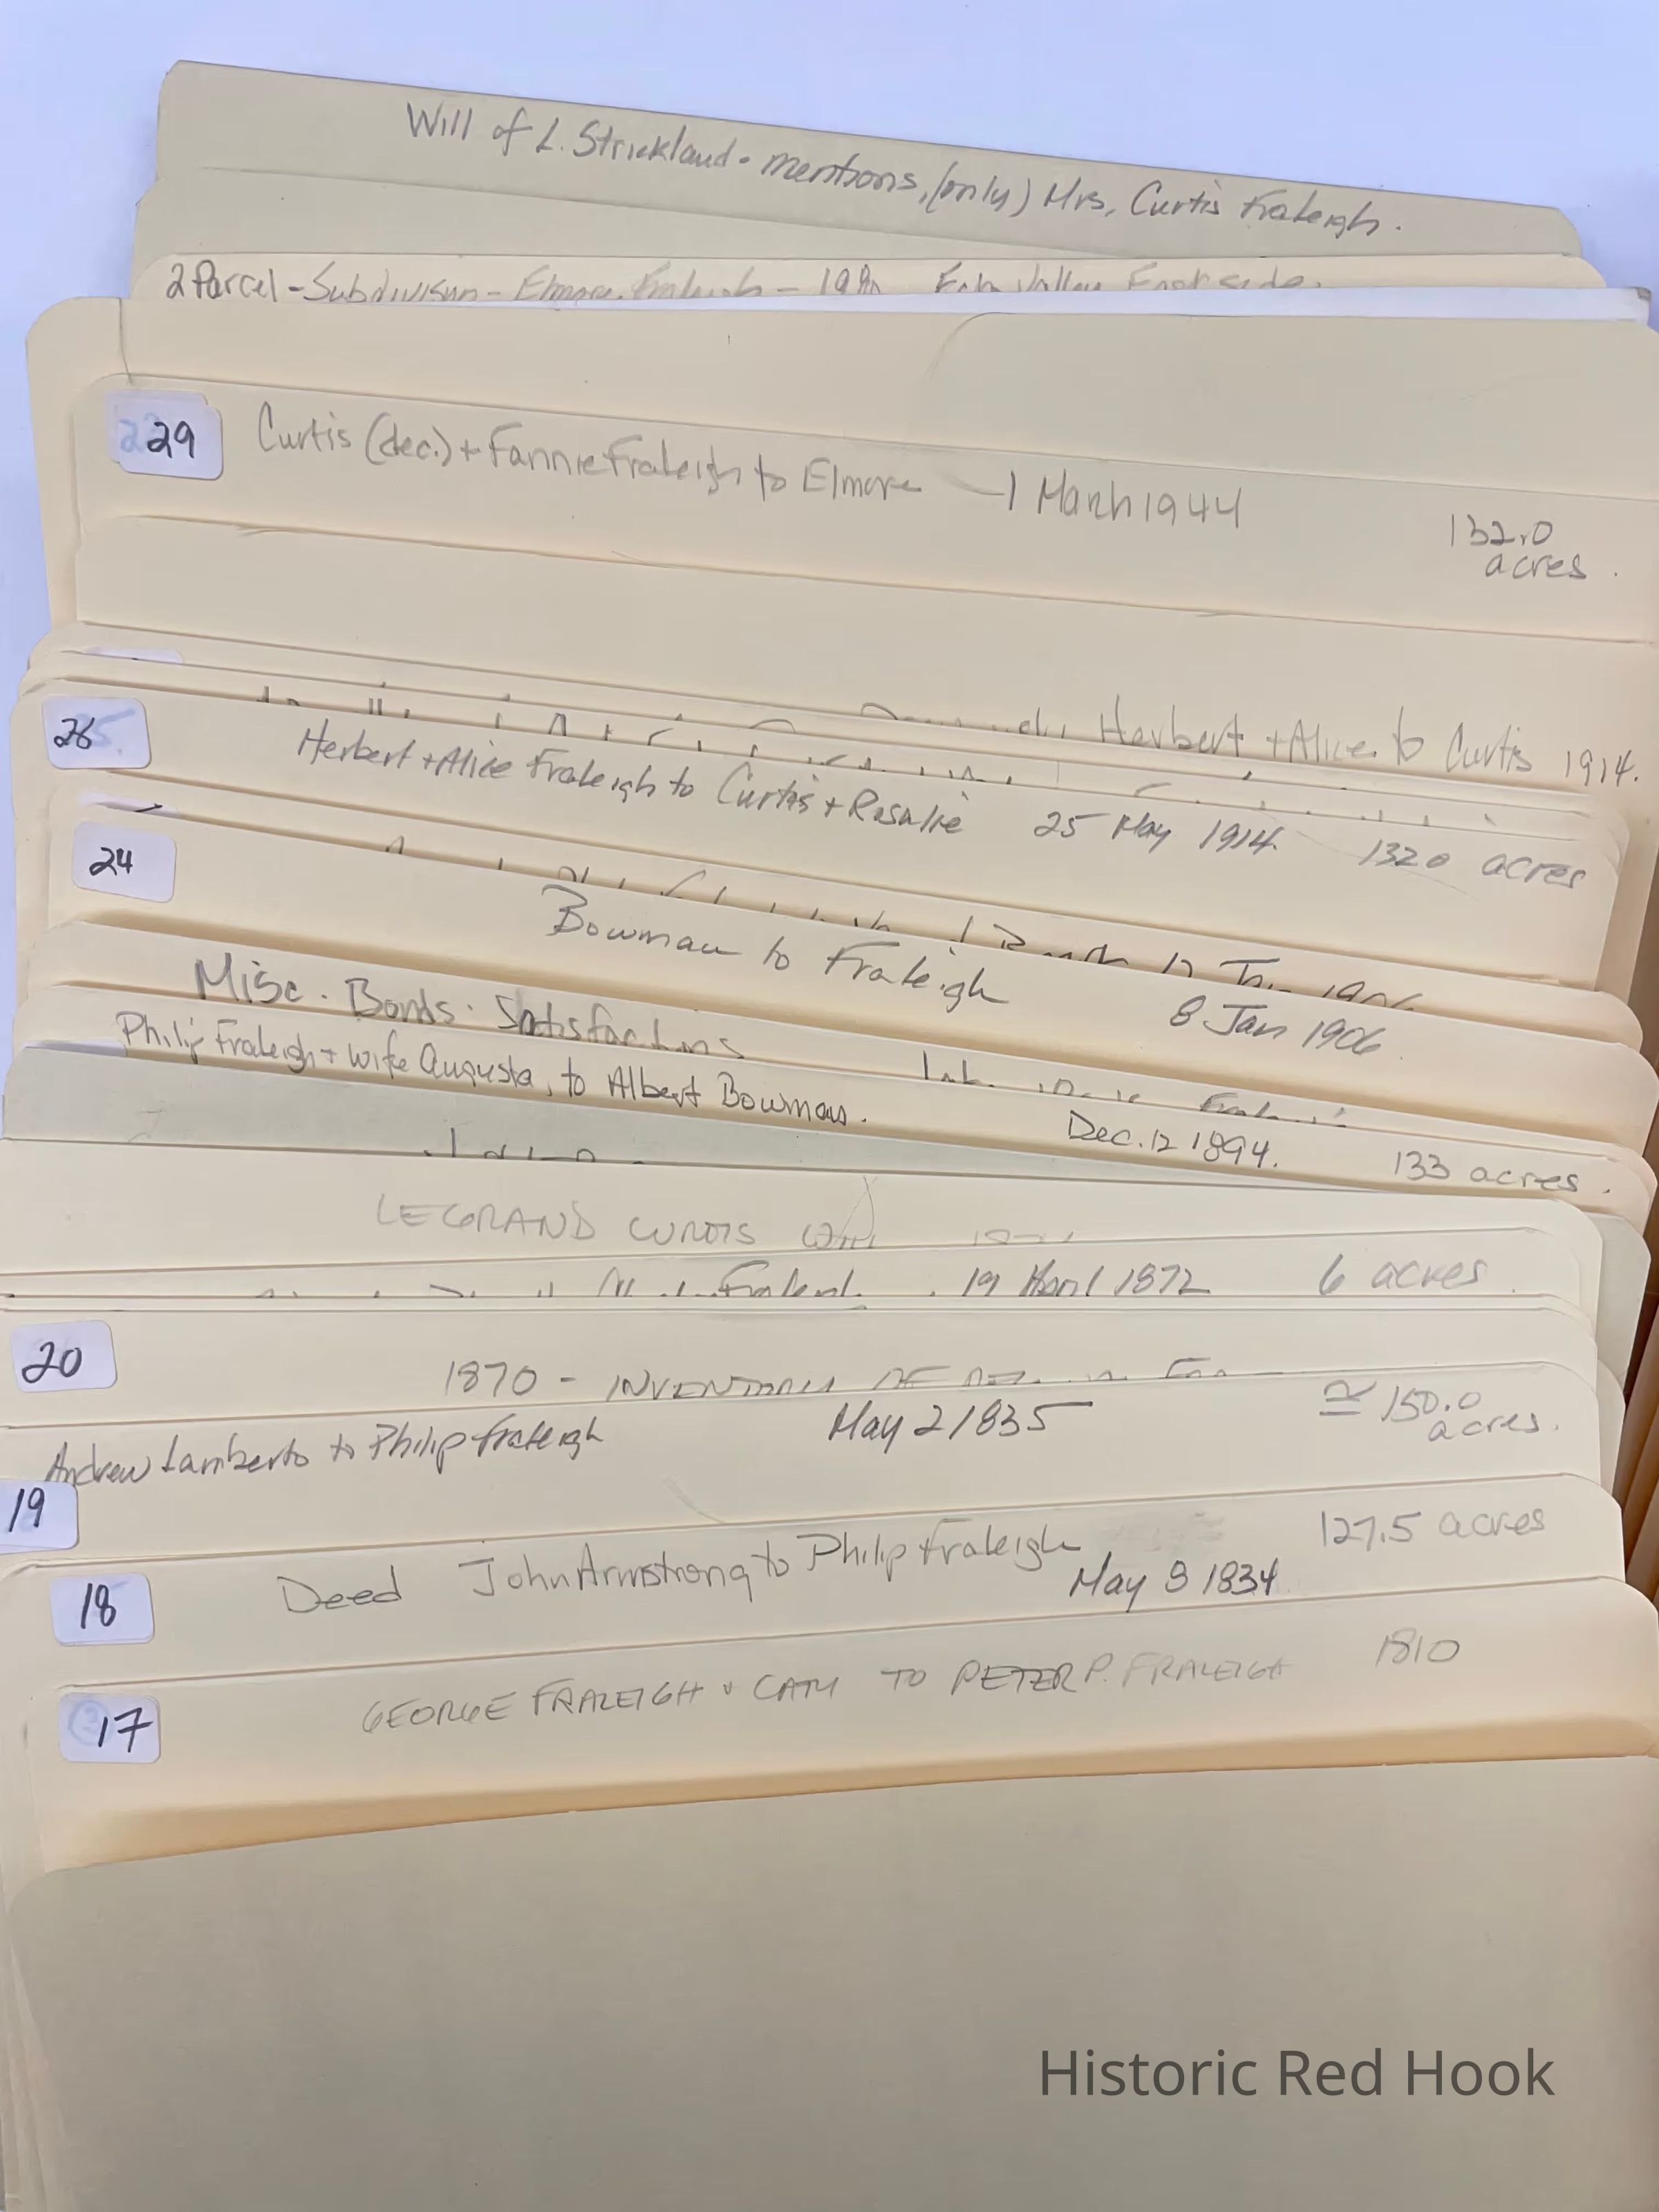 Will of L. Strickland - mentions, (only) Mrs. Curtis Fraleigh.
2 Parcel - Subdivision - Elmore Fraleigh
29 Curtis (dec.) + Fannie Fraleigh to Elmore - 1 March 1944
132.0
acres.
Herbert + Alice to Curtis 1914.
26 Herbert + Alice Fraleigh to Curtis + Rosalie 25 May 1914. 132.0 acres
24 Bowman to Fraleigh 8 Jan 1906
Misc. Bonds. Satisfactions
Philip Fraleigh + wife Augusta, to Albert Bowman. Dec. 12 1894. 133 acres.
LEGRAND CURTIS Will
Fraleigh 19 April 1872 6 acres
20 1870 - INVENTORY OF
Andrew Lamberto to Philip Fraleigh May 2 1835 ≅ 150.0
acres.
19
18 Deed John Armstrong to Philip Fraleigh 127.5 acres
May 3 1834
17 GEORGE FRALEIGH & CATY TO PETER P. FRALEIGH 1810
Historic Red Hook